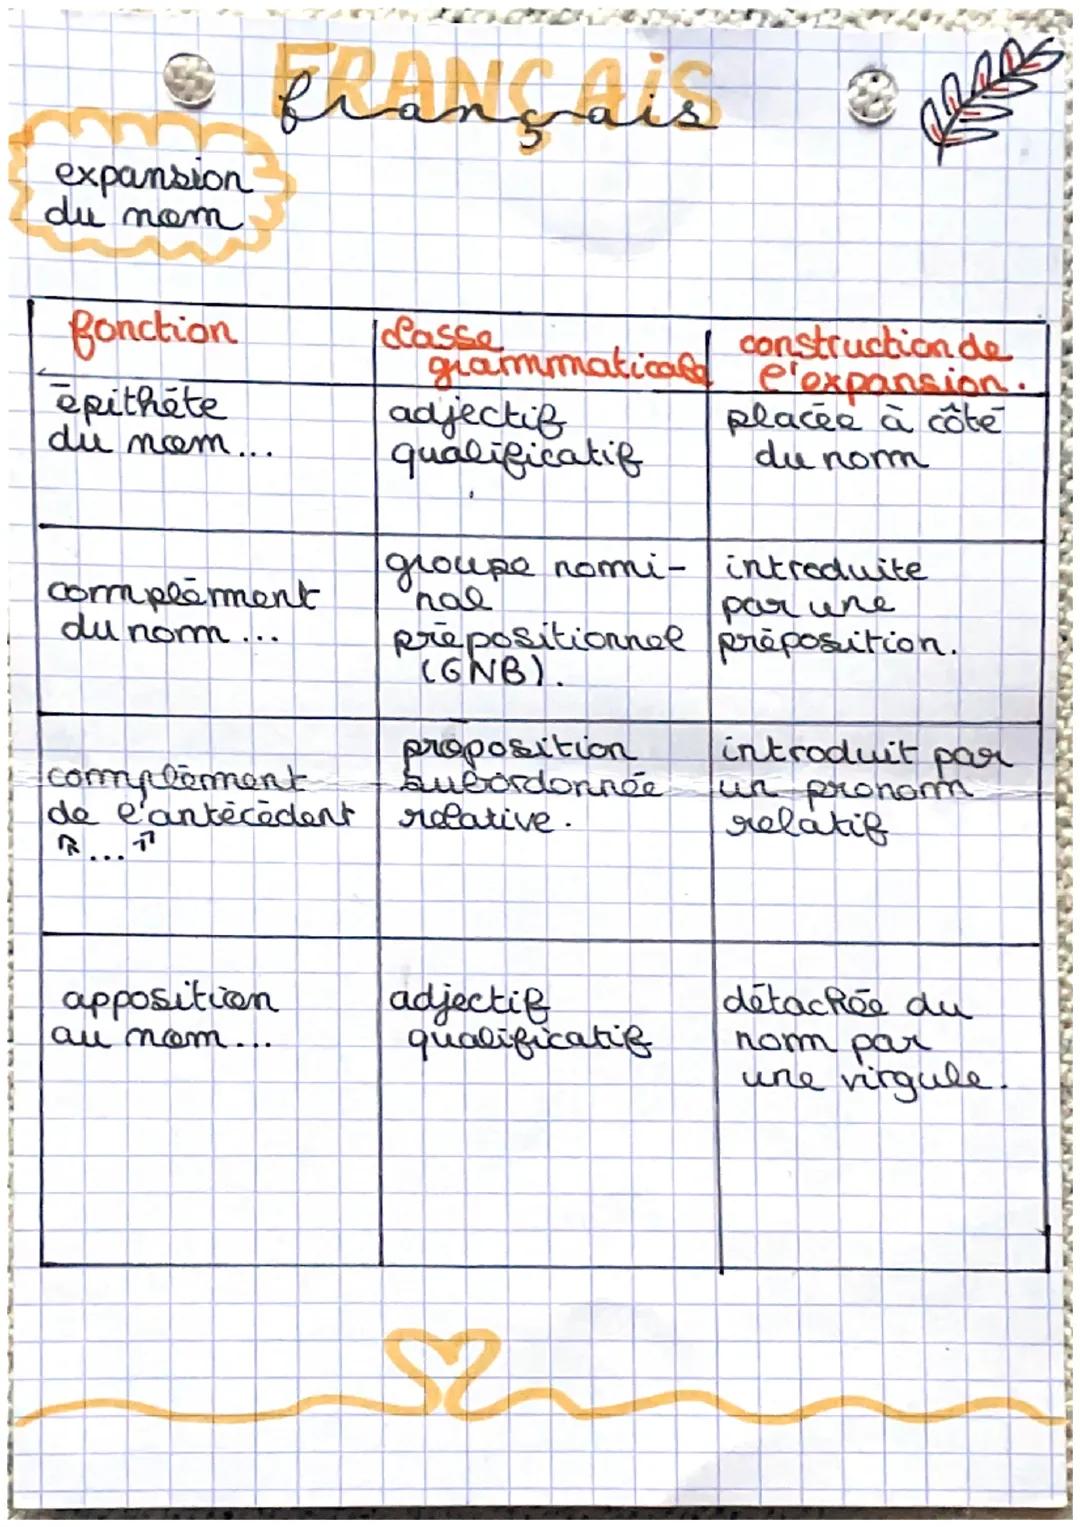 FRANÇAIS
français
expansion
du nom
fonction
classe
grammmaticale
construction de
l'expansion.
épithéte
du nom...
adjectif
qualificatif
placée à côté
du nom
complément
du nom...
groupe nomi-
nal
prépositionnel
(GNB).
introduite
par une
préposition.
complément
de l'antécédent
...
proposition
subordonnée
relative.
introduit par
un pronom
relatif
apposition
au nom...
adjectif
qualificatif
détachée du
nom par
une virgule.